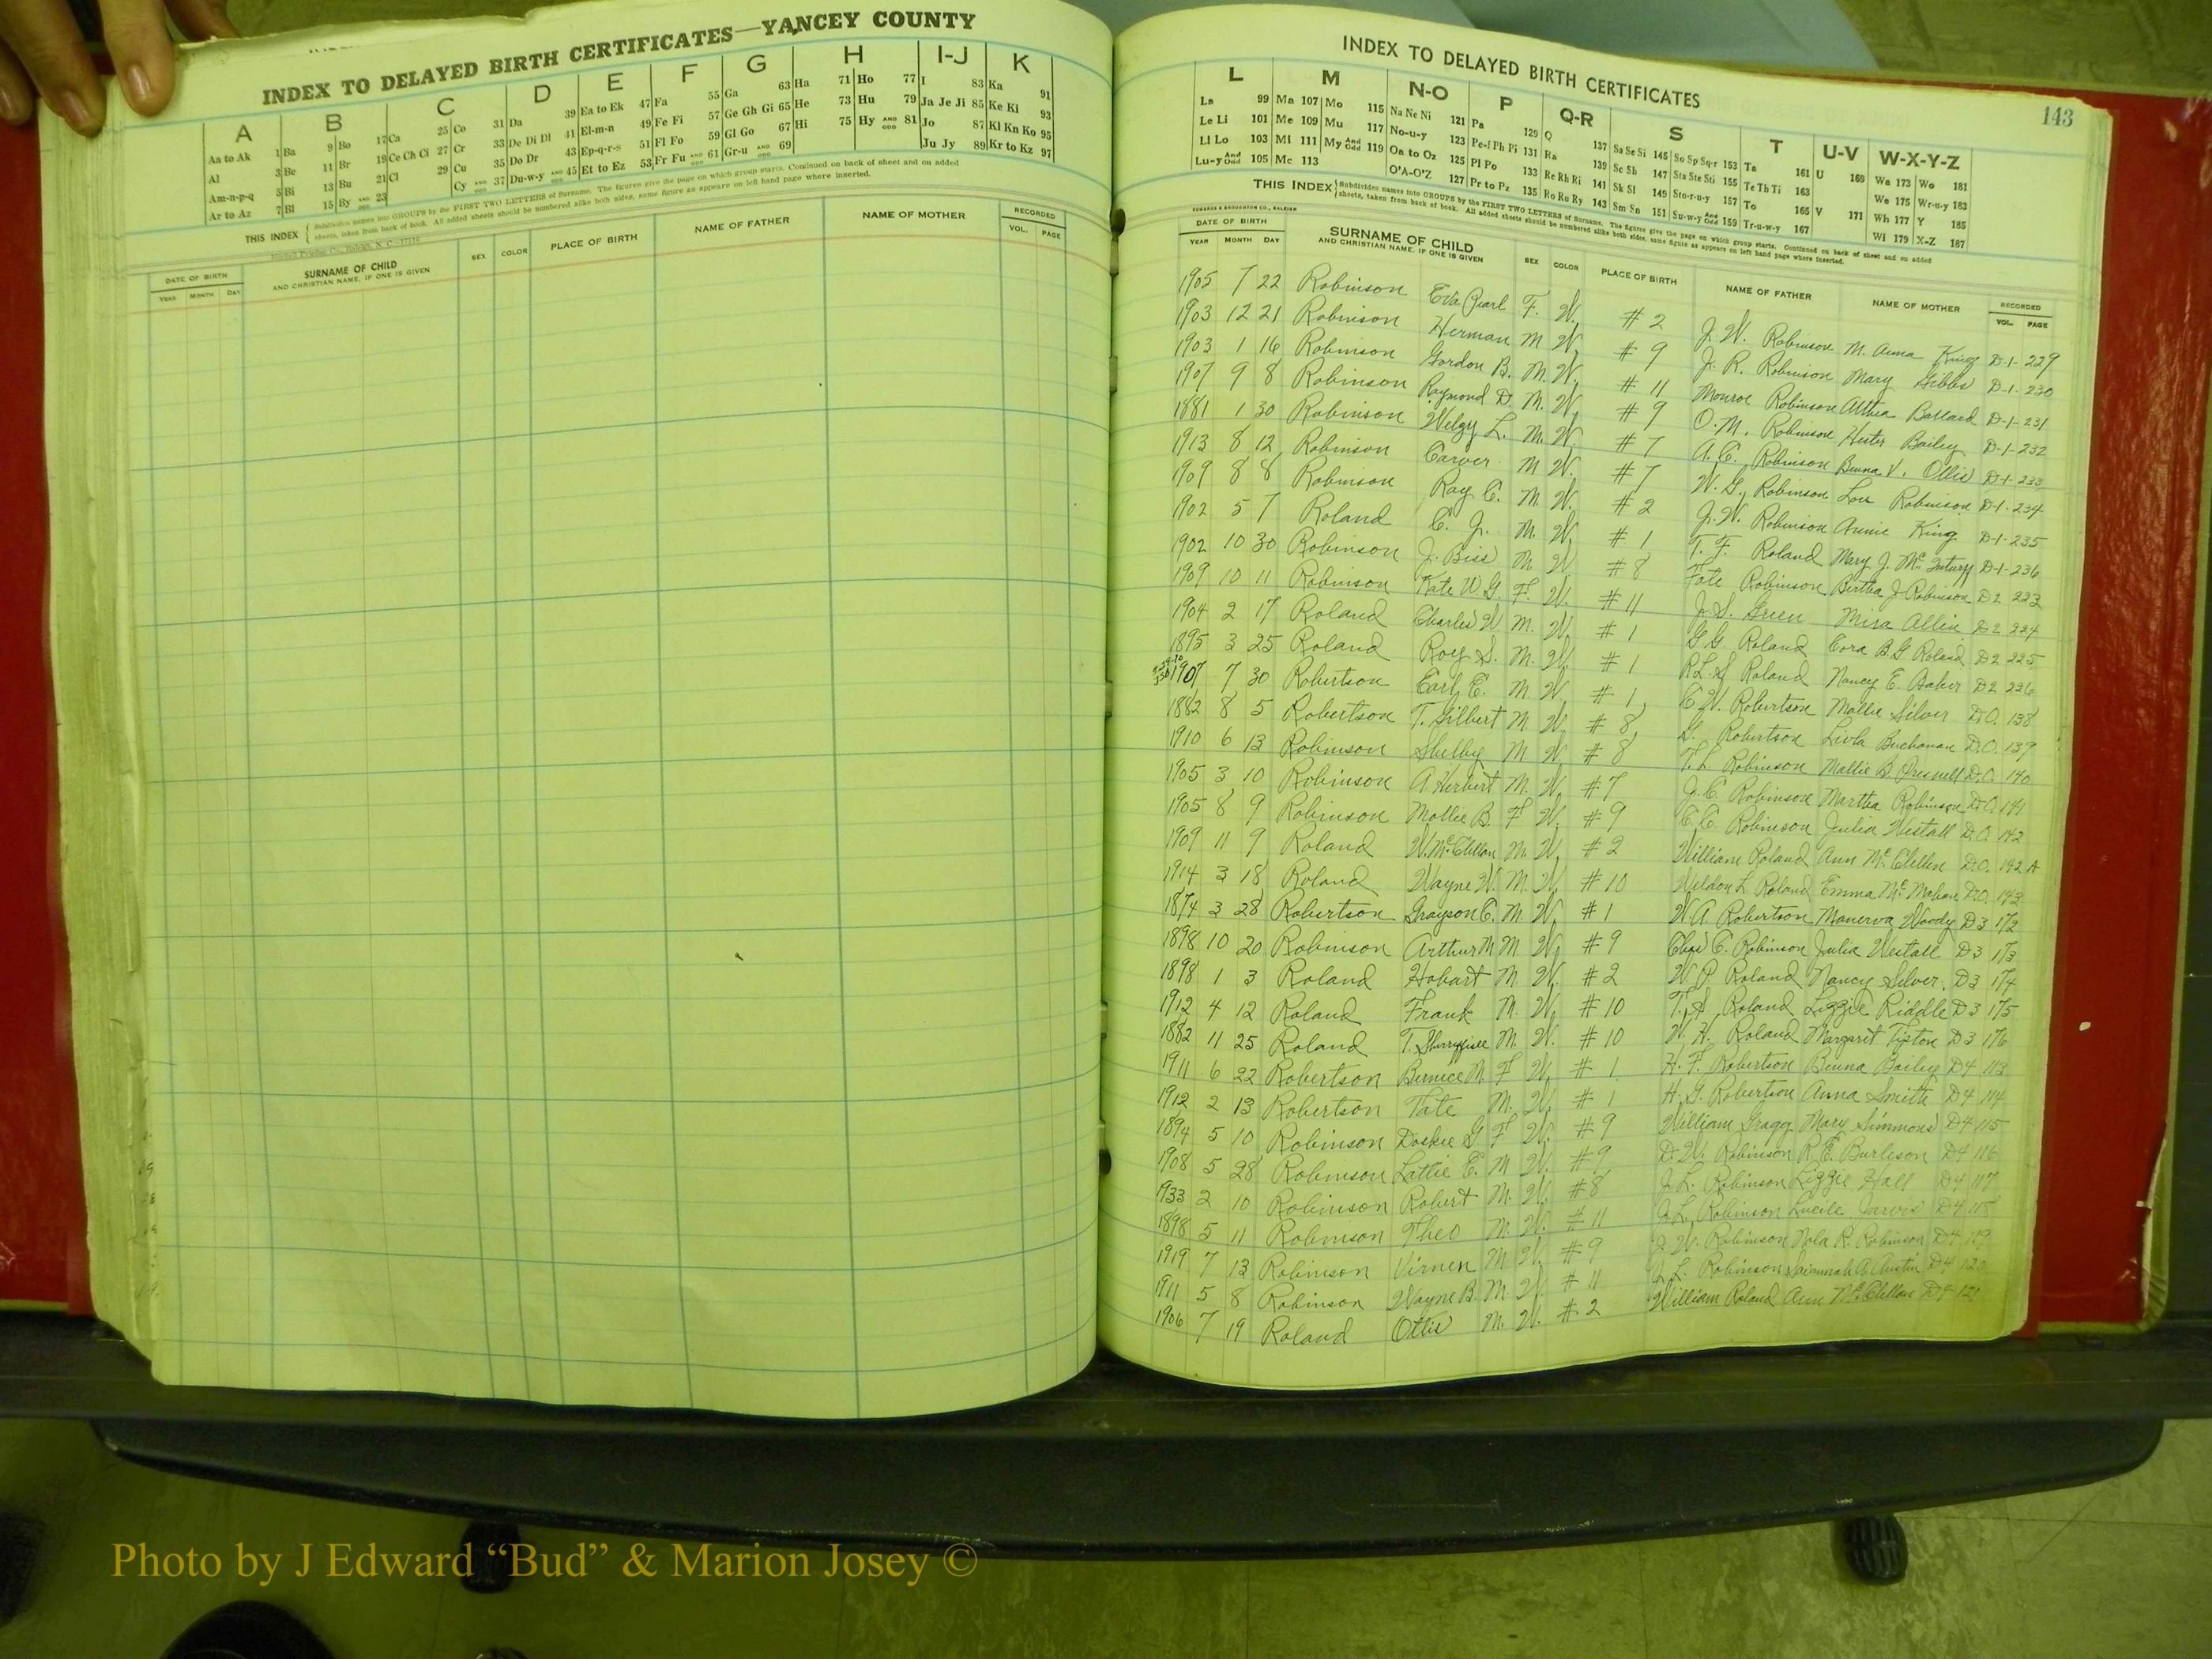 INDEX TO DELAYED BIRTH CERTIFICATES—YANCEY COUNTY
A B C D E F G H I-J K
Aa to Ak 1 Ba 9 Bo 17 Ca 25 Co 31 Da 39 Ea to Ek 47 Fa 55 Ga 63 Ha 71 Ho 77 I 83 Ka 91
Al 3 Be 11 Br 19 Ce Ch Ci 27 Cr 33 De Di Dl 41 El-m-n 49 Fe Fi 57 Ge Gh Gi 65 He 73 Hu 79 Ja Je Ji 85 Ke Ki 93
Am-n-p-q 5 Bi 13 Bu 21 Cl 29 Cu 35 Do Dr 43 Ep-q-r-s 51 Fl Fo 59 Gl Go 67 Hi 75 Hy AND ODD 81 Jo 87 Kl Kn Ko 95
Ar to Az 7 Bl 15 By AND ODD 23 Cy AND ODD 37 Du-w-y AND ODD 45 Et to Ez 53 Fr Fu AND ODD 61 Gr-u AND ODD 69 Ju Jy 89 Kr to Kz 97
THIS INDEX { Subdivides names into GROUPS by the FIRST TWO LETTERS of Surname. The figures give the page on which group starts. Continued on back of sheet and on added
sheets, taken from back of book. All added sheets should be numbered alike both sides, same figure as appears on left hand page where inserted.
DATE OF BIRTH SURNAME OF CHILD SEX COLOR PLACE OF BIRTH NAME OF FATHER NAME OF MOTHER RECORDED
YEAR MONTH DAY AND CHRISTIAN NAME, IF ONE IS GIVEN VOL. PAGE
INDEX TO DELAYED BIRTH CERTIFICATES
143
L M N-O P Q-R S T U-V W-X-Y-Z
La 99 Ma 107 Mo 115 Na Ne Ni 121 Pa 129 Q 137 Sa Se Si 145 So Sp Sq-r 153 Ta 161 U 169 Wa 173 Wo 181
Le Li 101 Me 109 Mu 117 No-u-y 123 Pe-f Ph Pi 131 Ra 139 Sc Sh 147 Sta Ste Sti 155 Te Th Ti 163 We 175 Wr-u-y 183
Ll Lo 103 Mi 111 My And Odd 119 Oa to Oz 125 Pl Po 133 Re Rh Ri 141 Sk Sl 149 Sto-r-u-y 157 To 165 V 171 Wh 177 Y 185
Lu-y And Odd 105 Mc 113 O'A-O'Z 127 Pr to Pz 135 Ro Ru Ry 143 Sm Sn 151 Su-w-y And Odd 159 Tr-u-w-y 167 Wi 179 X-Z 187
THIS INDEX { Subdivides names into GROUPS by the FIRST TWO LETTERS of Surname. The figures give the page on which group starts. Continued on back of sheet and on added
sheets, taken from back of book. All added sheets should be numbered alike both sides, same figure as appears on left hand page where inserted.
EDWARDS & BROUGHTON CO., RALEIGH
DATE OF BIRTH SURNAME OF CHILD SEX COLOR PLACE OF BIRTH NAME OF FATHER NAME OF MOTHER RECORDED
YEAR MONTH DAY AND CHRISTIAN NAME, IF ONE IS GIVEN VOL. PAGE
1905 7 22 Robinson Eva Pearl F. W. #2 J. W. Robinson M. Anna King D-1-229
1903 12 21 Robinson Herman M W. #9 J. R. Robinson Mary Gibbs D-1-230
1903 1 16 Robinson Gordon B. M. W. #11 Monroe Robinson Ballard D-1-231
1907 9 8 Robinson Raymond D. M. W. #9 O. M. Robinson Hester Bailey D-1-232
1881 1 30 Robinson Welzy L. M. W. #7 A. C. Robinson V. Ollis D-1-233
1913 8 12 Robinson Carver M W. #7 W. G. Robinson Lou Robinson D-1-234
1909 8 8 Robinson Ray C. M. W. #2 J. W. Robinson Annie King D-1-235
1902 5 7 Roland C. J. M. W. #1 T. F. Roland Mary J. D-1-236
1902 10 30 Robinson J. Biss M W #8 Fate Robinson Bertha J. Robinson D2 223
1909 10 11 Robinson Kate W. G. F. W. #11 J. S. Green Mira Allen D2 224
1904 2 17 Roland Charles W M. W. #1 G G. Roland Cora B. G Roland D2 225
1895 3 25 Roland Roy S. M. W. #1 R. L. S Roland Nancy E. Baker D2 226
1907 7 30 Robertson Earl E. M. W #1 C. W. Robertson Mollie Silver D.O. 138
1882 8 5 Robertson T. Gilbert M W. #8 Robertson Buchanan D.O. 139
1910 6 13 Robinson Shelby M W #8 T. L. Robinson Mallie B. Presnell D.O. 140
1905 3 10 Robinson A Herbert M. W. #7 J. C. Robinson Martha Robinson D.O. 141
1905 8 9 Robinson Mollie B. F W. #9 C. C. Robinson Julia Westall D.O. 142
1909 11 9 Roland W. McClellan M. W. #2 William Roland Ann McClellen D.O. 142 A
1914 3 18 Roland Wayne W. M. W. #10 Weldon L. Roland Emma McMahan D.O. 143
1874 3 28 Robertson Grayson C. M W. #1 W. A. Robertson Manerva Woody D3 172
1898 10 20 Robinson Arthur M M. W. #9 Chas C. Robinson Julia Westall D3 173
1898 1 3 Roland Hobart M. W. #2 W. P. Roland Nancy Silver D3 174
1912 4 12 Roland Frank M. W. #10 T. S. Roland Lizzie Riddle D3 175
1882 11 25 Roland T. M. W. #10 W. H. Roland Margaret Tipton D3 176
1911 6 22 Robertson Bernice M. F W. #1 H. F. Robertson Benna Bailey D4 113
1912 2 13 Robertson Tate M. W. #1 H. G. Robertson Anna Smith D4 114
1894 5 10 Robinson Doskie G. F W. #9 William Gragg Mary Simmons D4 115
1908 5 28 Robinson Lattie E. M W. #9 D. W. Robinson R. E. Burleson D4 116
1933 2 10 Robinson Robert M. W. #8 J. L. Robinson Lizzie Hall D4 117
1898 5 11 Robinson Theo M. W. #11 J. L. Robinson Lucile Jarvis D4 118
1919 7 13 Robinson Virnen M W. #9 J. W. Robinson Nola R. Robinson D4 119
1911 5 8 Robinson Wayne B. M. W. #11 J. L. Robinson Savannah A. Austin D4 120
1906 7 19 Roland Ottis M. W. #2 William Roland Ann McClellan D4 121
Photo by J Edward “Bud” & Marion Josey ©